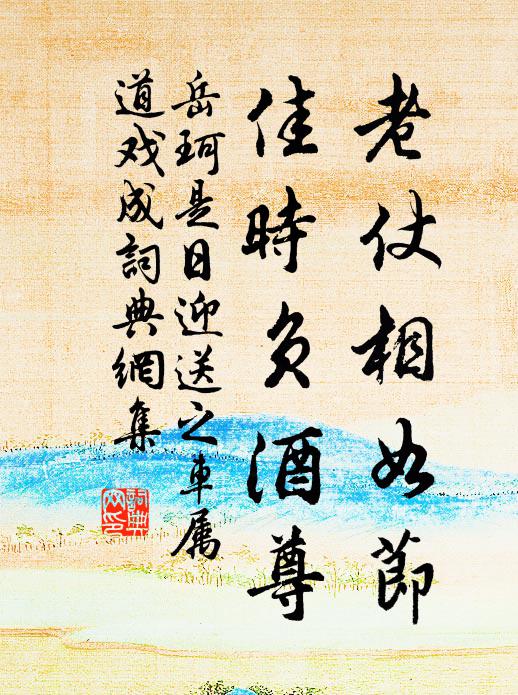 老仗相如節
佳時負酒尊
岳珂是日迎送之車属
道戏成詞典網集
詞典